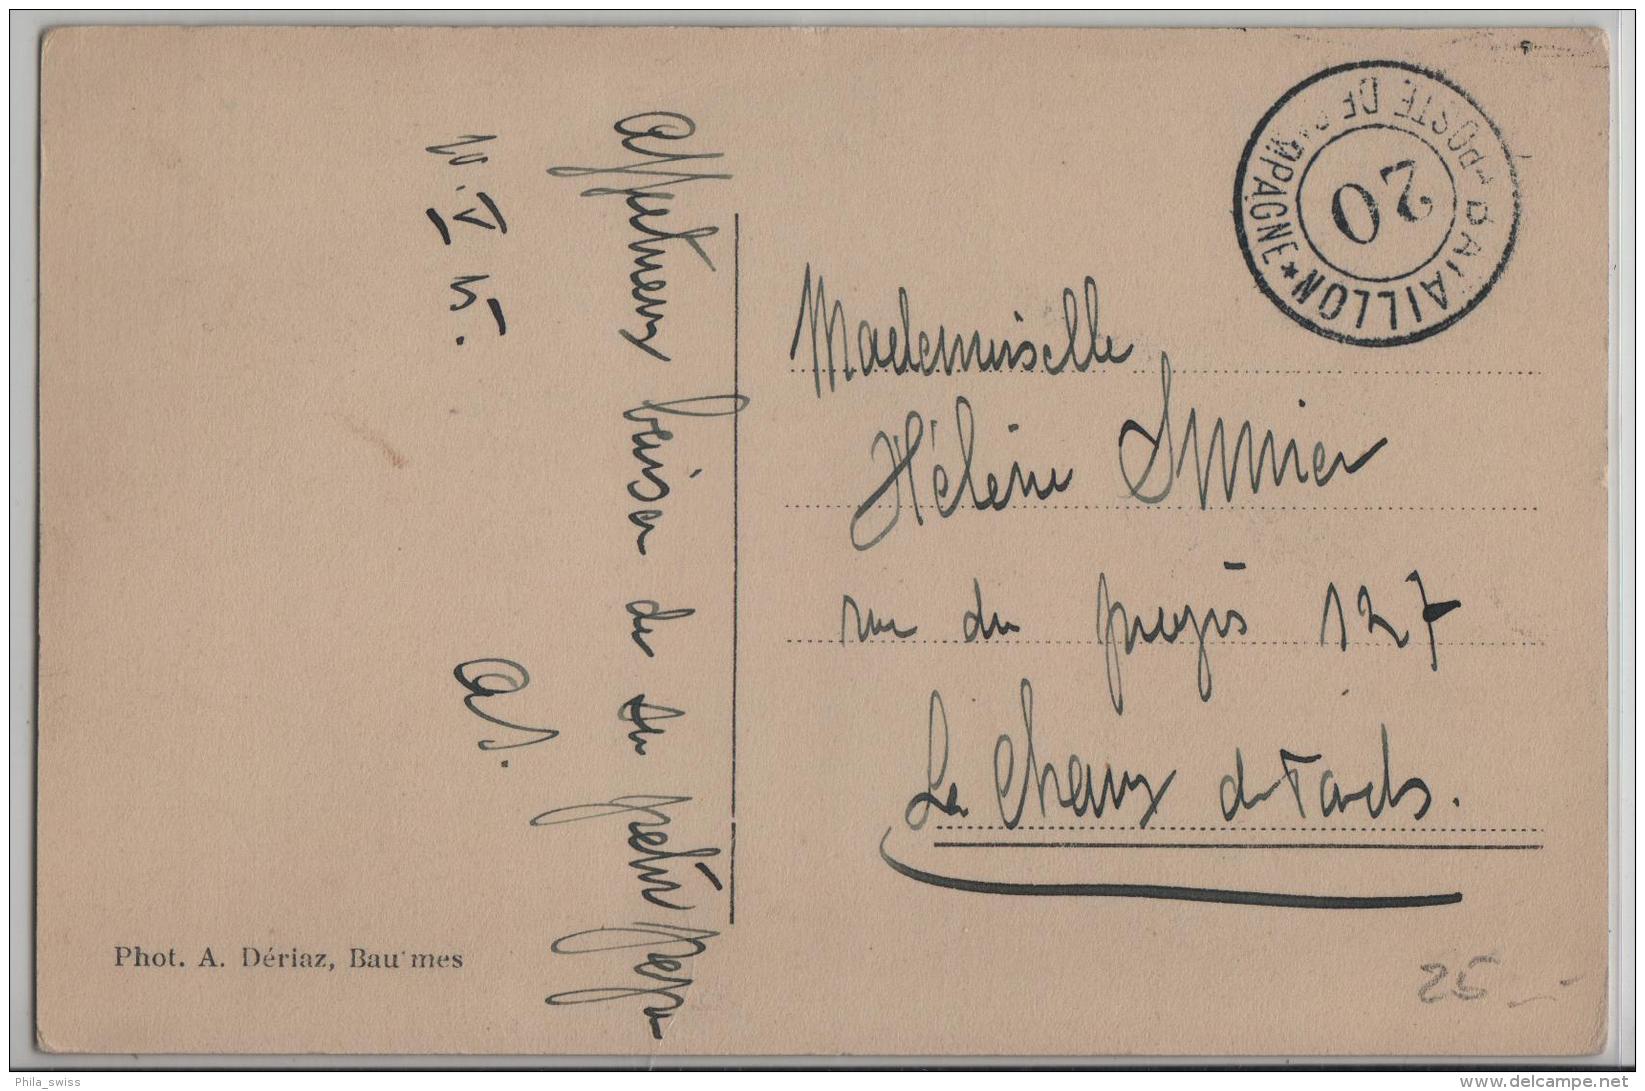 BATAILLON
POSTE DE CAMPAGNE
20
Mademoiselle
Hélène
rue du progrès 127
La Chaux de Fonds.
baiser de
10. V 15.
Phot. A. Dériaz, Baulmes
25.-
Phila_swiss
www.delcampe.net